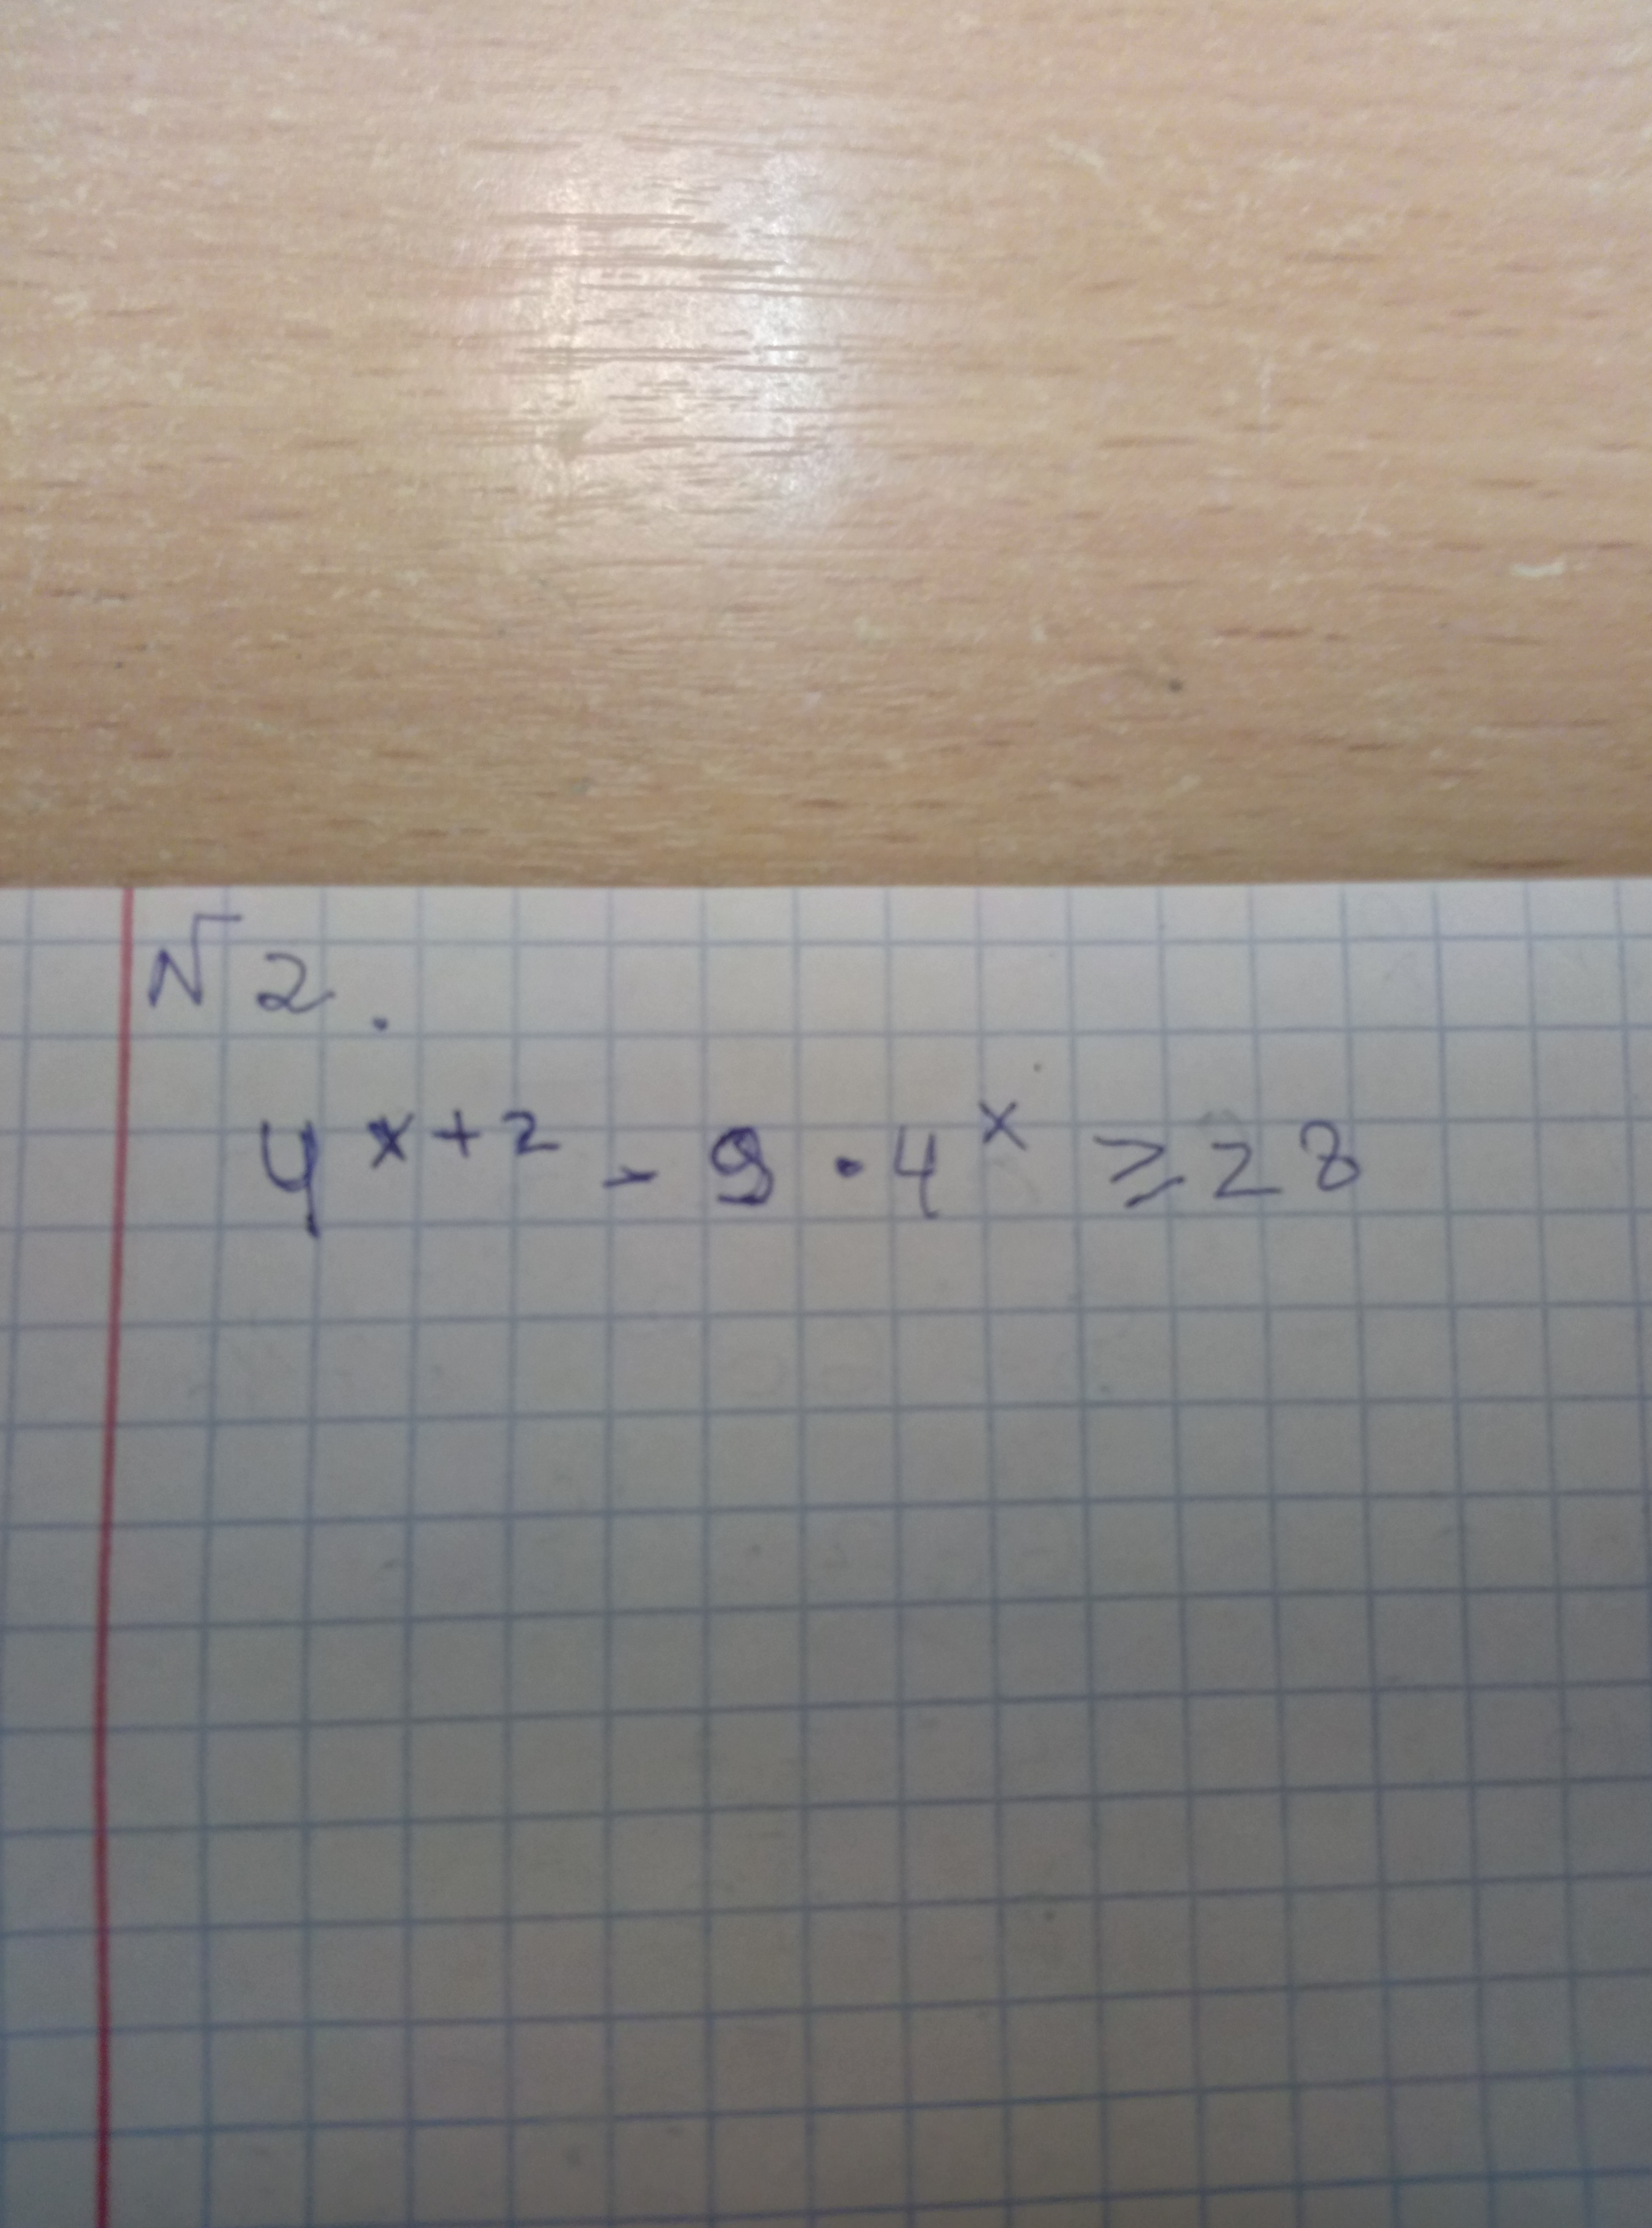 № 2.
4^{x+2} - 9 · 4^x ⩾ 28